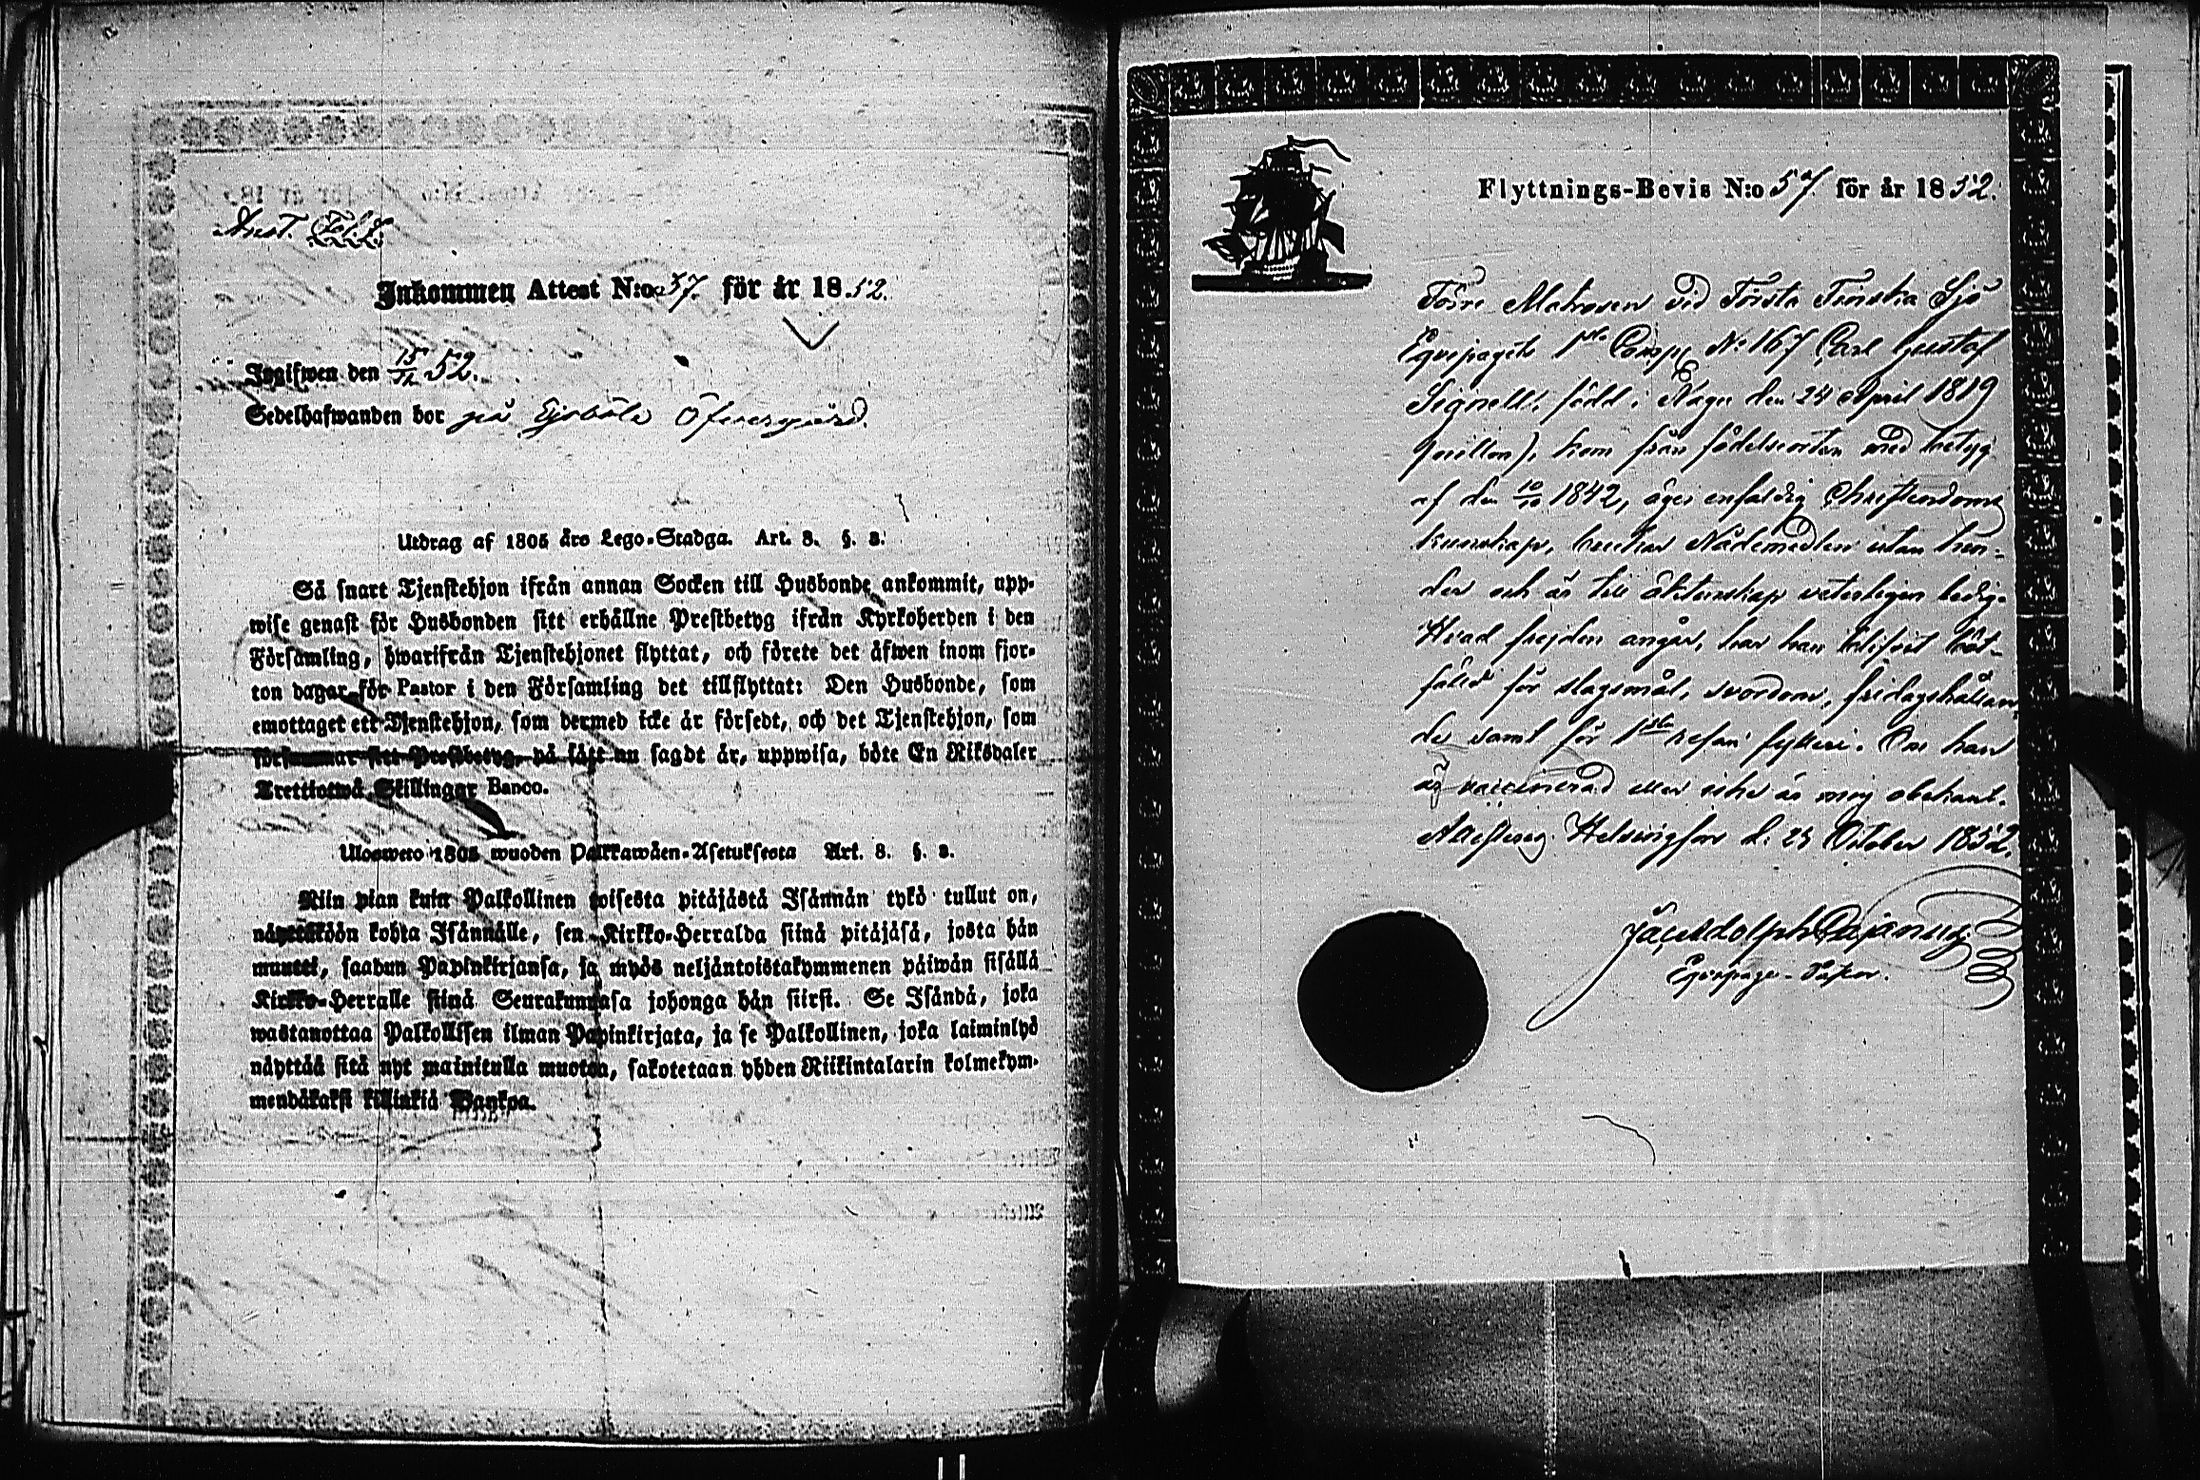 Inkommen Attest N:o 37. för år 1852.
Ingifwen den 15/12 52.
Sedelhafwanden bor på Öfvergård.
Utdrag af 1805 års Lego-Stadga. Art. 3. §. 8.
Så snart Tjenstehjon ifrån annan Socken till Husbonde ankommit, upp-
wise genast för Husbonden sitt erhållne Prestbetyg ifrån Kyrkoherden i den
Församling, hwarifrån Tjenstehjonet flyttat, och förete det äfwen inom fjor-
ton dagar för Pastor i den Församling det tillflyttat: Den Husbonde, som
emottaget ett Tjenstehjon, som dermed icke är försedt, och det Tjenstehjon, som
försummar sitt Prestbetyg, på sätt nu sagdt är, uppwisa, böte En Riksdaler
Trettiotwå Skillingar Banco.
Ulosweto 1805 wuoden Palkkawäen-Asetuksesta Art. 3. §. 8.
Niin pian kuin Palkollinen toisesta pitäjästä Isännän tykö tullut on,
näyttäköön kohta Isännälle, sen Kirkko-Herralda siinä pitäjäsä, josta hän
muutti, saadun Papinkirjansa, ja myös neljäntoistakymmenen päiwän sisällä
Kirkko-Herralle siinä Seurakunnasa johonga hän siirsi. Se Isändä, joka
wastanottaa Palkollisen ilman Papinkirjata, ja se Palkollinen, joka laiminlyö
näyttää sitä nyt mainitulla muoton, sakotetaan yhden Riikintalarin kolmekym-
mendäkaksi killinkiä Bankoa.
Flyttnings-Bevis N:o 57 för år 1852.
Förre Matrosen vid Första Finska Sjö
Equipagets 1sta Comp. N:o 167 Carl Gustaf
Signell, född i Nagu den 24 April 1819
kom från födelseorten med betyg
af den 10/10 1842, äger enfaldig Christendoms
kunskap, Nådemedlen utan hin-
der och är till äktenskap veterligen ledig.
Hvad frejden angår, har han blifvit böt-
fälld för slagsmål, svordom,
de samt för 1sta resan fylleri. Om han
är vaccinerad eller icke är mig obekant.
Helsingfors d. 23 October 1852.
Equipage-Pastor.